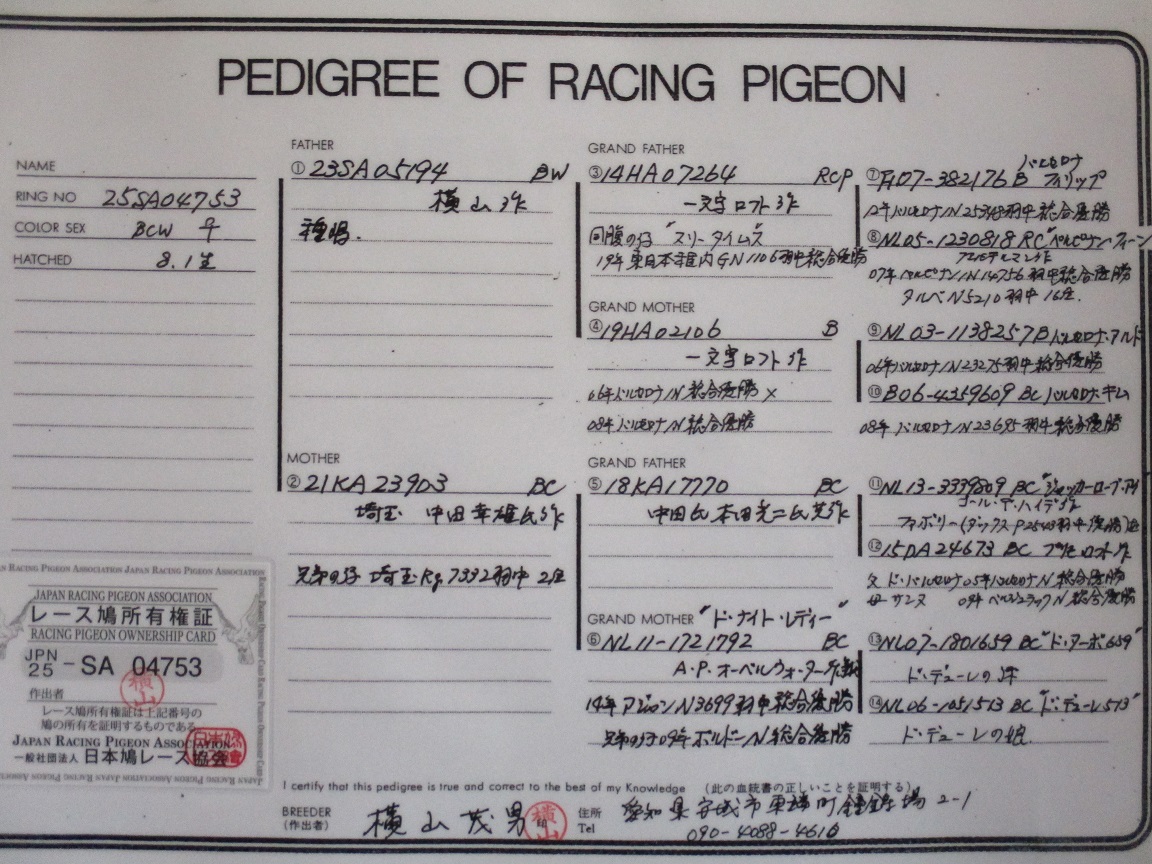 PEDIGREE OF RACING PIGEON
NAME
RING NO 25SA04753
COLOR SEX BCW ♀
HATCHED 8.1生
FATHER
①23SA05194 BW
横山作
種鳩.
MOTHER
②21KA23903 BC
埼玉 中田幸雄氏作
兄弟の仔 埼玉Rg 7332羽中 2位
GRAND FATHER
③14HA07264 RCP
一文字ロフト作
同腹の仔 "スリータイムズ"
19年東日本稚内GN1106羽中総合優勝
GRAND MOTHER
④19HA02106 B
一文字ロフト作
06年バルセロナIN総合優勝×
08年バルセロナIN総合優勝
GRAND FATHER
⑤18KA17770 BC
中田氏本田
GRAND MOTHER "ド・ナイト・レディー"
⑥NL11-1721792 BC
A・P・オーベルウォーター作
14年アジャンN3699羽中総合優勝
兄弟の仔09年ボルドーN総合優勝
バルセロナ
⑦ 07-382176 B フィリップ
12年バルセロナIN25348羽中総合優勝
⑧NL05-1230818 RC "ペルピナン・クィーン
07年ペルピナンIN14756羽中総合優勝
タルベN5210羽中16位.
⑨NL03-1138257 B バルセロナ・アルド
06年バルセロナIN23275羽中総合優勝
⑩B06-4359609 BC バルセロナ・キム
08年バルセロナIN23695羽中総合優勝
⑪NL13-3339809 BC
⑫15DA24673 BC
父 ド・バルセロナ05年バルセロナN総合優勝
母 サンヌ 09年ベルジュラックN総合優勝
⑬NL07-1801659 BC "ド・ターボ659"
ド・デューレの
⑭NL06-1051513 BC "ド・デューレ513"
ド・デューレの娘.
JAPAN RACING PIGEON ASSOCIATION
レース鳩所有権証
RACING PIGEON OWNERSHIP CARD
JPN
25 - SA 04753
作出者 横山
レース鳩所有権証は上記番号の
鳩の所有を証明するものである
JAPAN RACING PIGEON ASSOCIATION
一般社団法人 日本鳩レース協会
I certify that this pedigree is true and correct to the best of my Knowledge (此の血統書の正しいことを証明する)
BREEDER
(作出者) 横山茂男 横山印
住所 愛知県安城市東端町鐘鋳場2-1
Tel 090-4088-4616